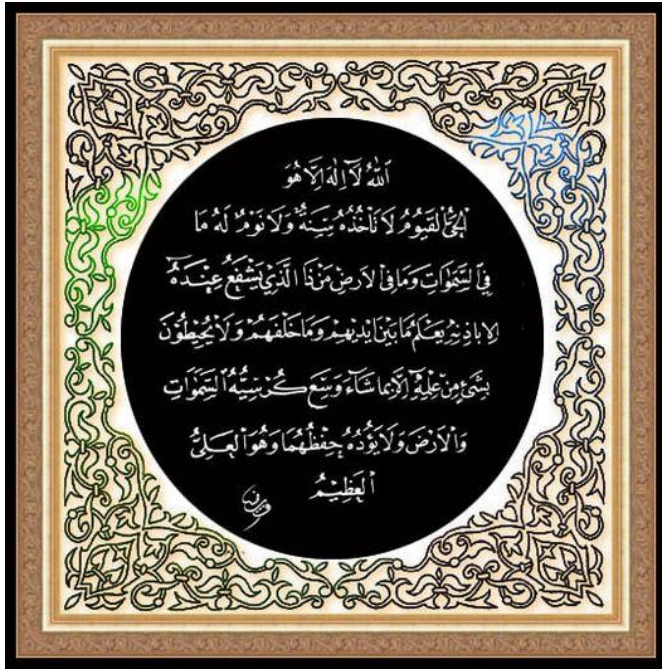 اَللّٰهُ لَآ اِلٰهَ اِلَّا هُوَ
اَلْحَيُّ الْقَيُّوْمُ لَا تَأْخُذُهٗ سِنَةٌ وَّلَا نَوْمٌ لَهٗ مَا
فِي السَّمٰوٰتِ وَمَا فِي الْاَرْضِ مَنْ ذَا الَّذِيْ يَشْفَعُ عِنْدَهٗٓ
اِلَّا بِاِذْنِهٖ يَعْلَمُ مَا بَيْنَ اَيْدِيْهِمْ وَمَا خَلْفَهُمْ وَلَا يُحِيْطُوْنَ
بِشَيْءٍ مِّنْ عِلْمِهٖٓ اِلَّا بِمَا شَآءَ وَسِعَ كُرْسِيُّهُ السَّمٰوٰتِ
وَالْاَرْضَ وَلَا يَئُوْدُهٗ حِفْظُهُمَا وَهُوَ الْعَلِيُّ
الْعَظِيْمُ